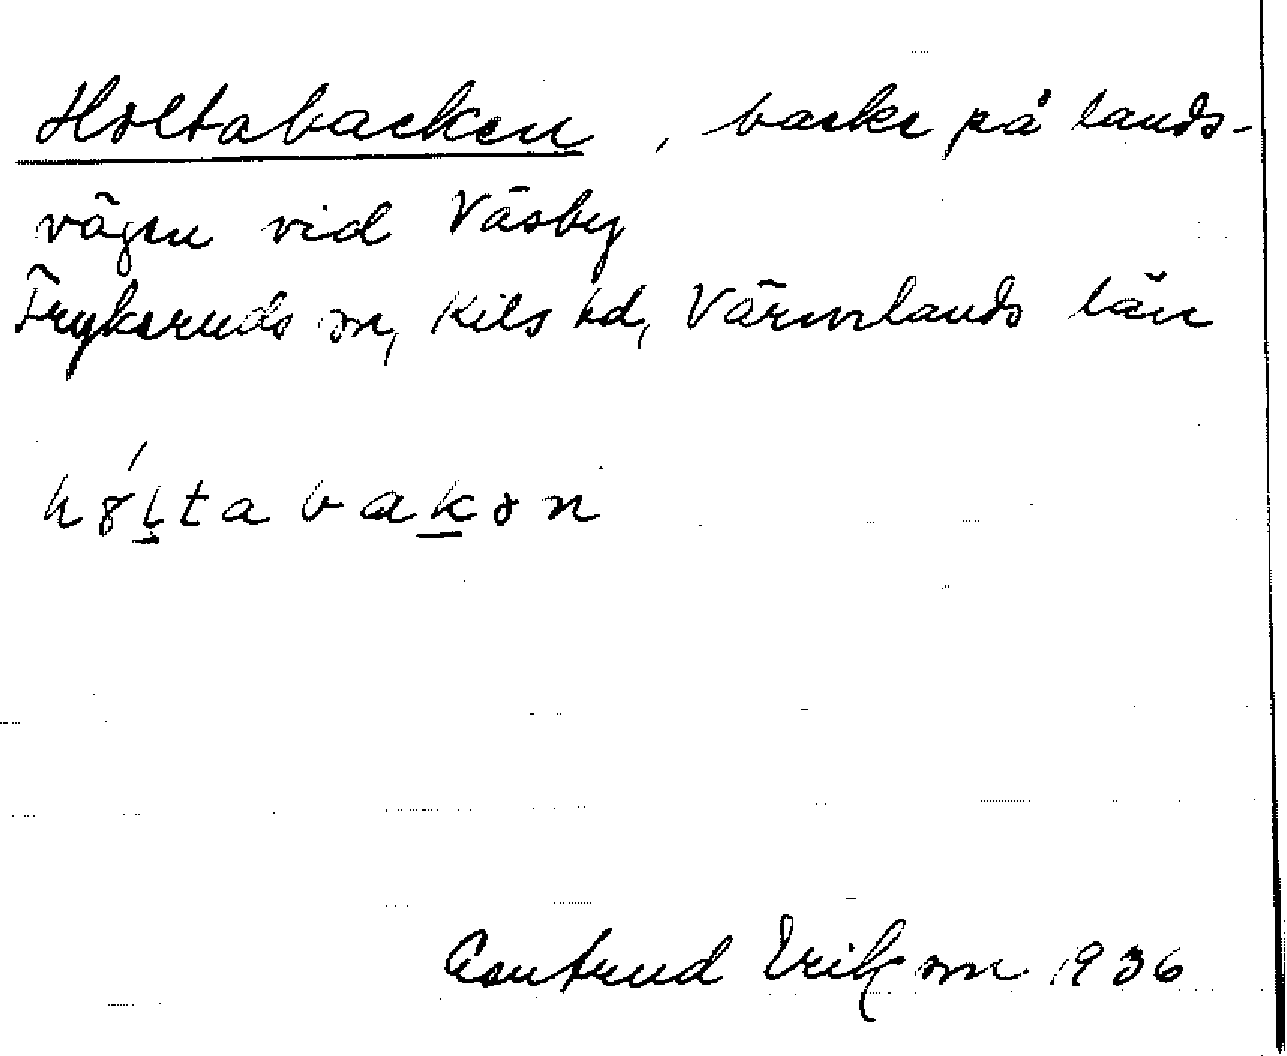 Holtabacken, backe på lands-
vägen vid Väsby
Frykeruds sn, Kils hd, Värmlands län
hɤ́l̠ta bak̠ɤn
Gertrud Erikson 1936